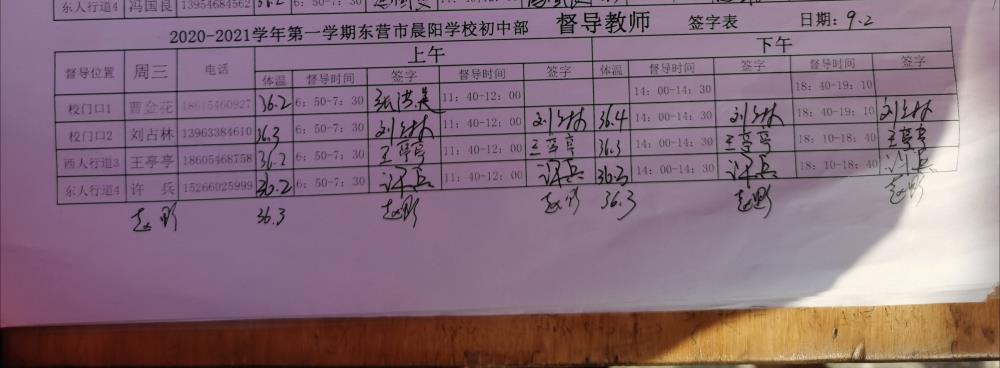 东人行道4 冯国良 13954684562 36.2 6：50-7：30
2020-2021学年第一学期东营市晨阳学校初中部 督导教师 签字表 日期：9.2
上午 下午
督导位置 周三 电话 体温 督导时间 签字 督导时间 签字 体温 督导时间 签字 督导时间 签字
校门口1 曹金花 18615460927 36.2 6：50-7：30 张洪 11：40-12：00 14：00-14：30 18：40-19：10
校门口2 刘占林 13963384610 36.3 6：50-7：30 刘占林 11：40-12：00 刘占林 36.4 14：00-14：30 刘占林 18：40-19：10 刘占林
西人行道3 王亭亭 18605468758 36.2 6：50-7：30 王亭亭 11：40-12：00 王亭亭 36.3 14：00-14：30 王亭亭 18：10-18：40 王亭亭
东人行道4 许 兵 15266025999 36.2 6：50-7：30 许兵 11：40-12：00 许兵 36.3 14：00-14：30 许兵 18：10-18：40 许兵
赵彤 36.3 赵彤 赵彤 36.3 赵彤 赵彤